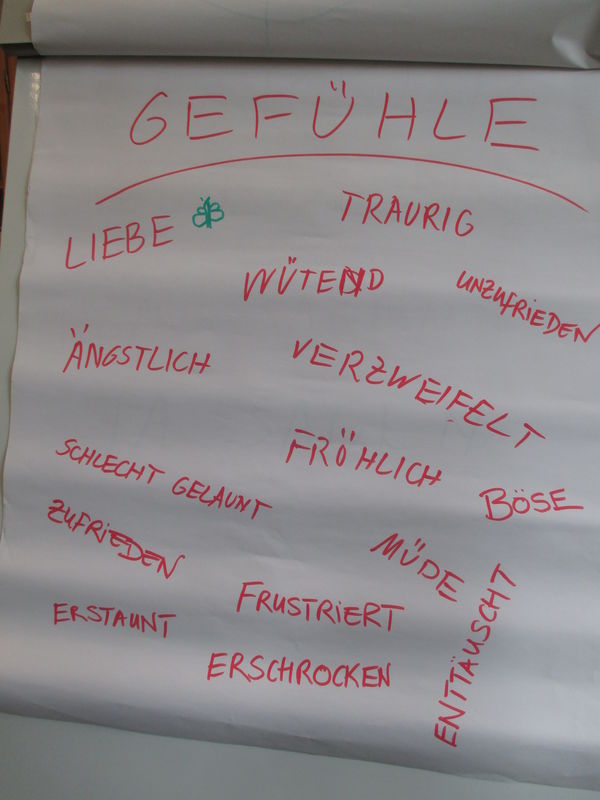 GEFÜHLE
LIEBE
TRAURIG
WÜTEND
UNZUFRIEDEN
ÄNGSTLICH
VERZWEIFELT
SCHLECHT GELAUNT
FRÖHLICH
BÖSE
ZUFRIEDEN
MÜDE
ERSTAUNT
FRUSTRIERT
ERSCHROCKEN
ENTTÄUSCHT